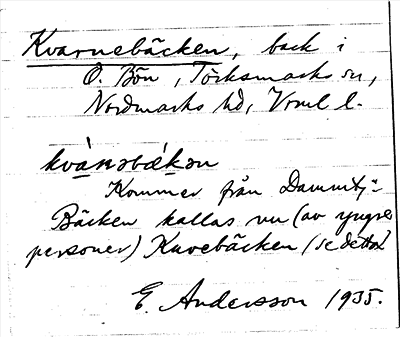 Kvarnebäcken, back i
Ö. Bön, Töcksmarks sn,
Nordmarks hd, Vrml l.
kvà𝑛əbǽkən
Kommer från Dammtj:n
Bäcken kallas nu (av yngre
personer) Knvebäcken (se detta)
E. Andersson 1935.